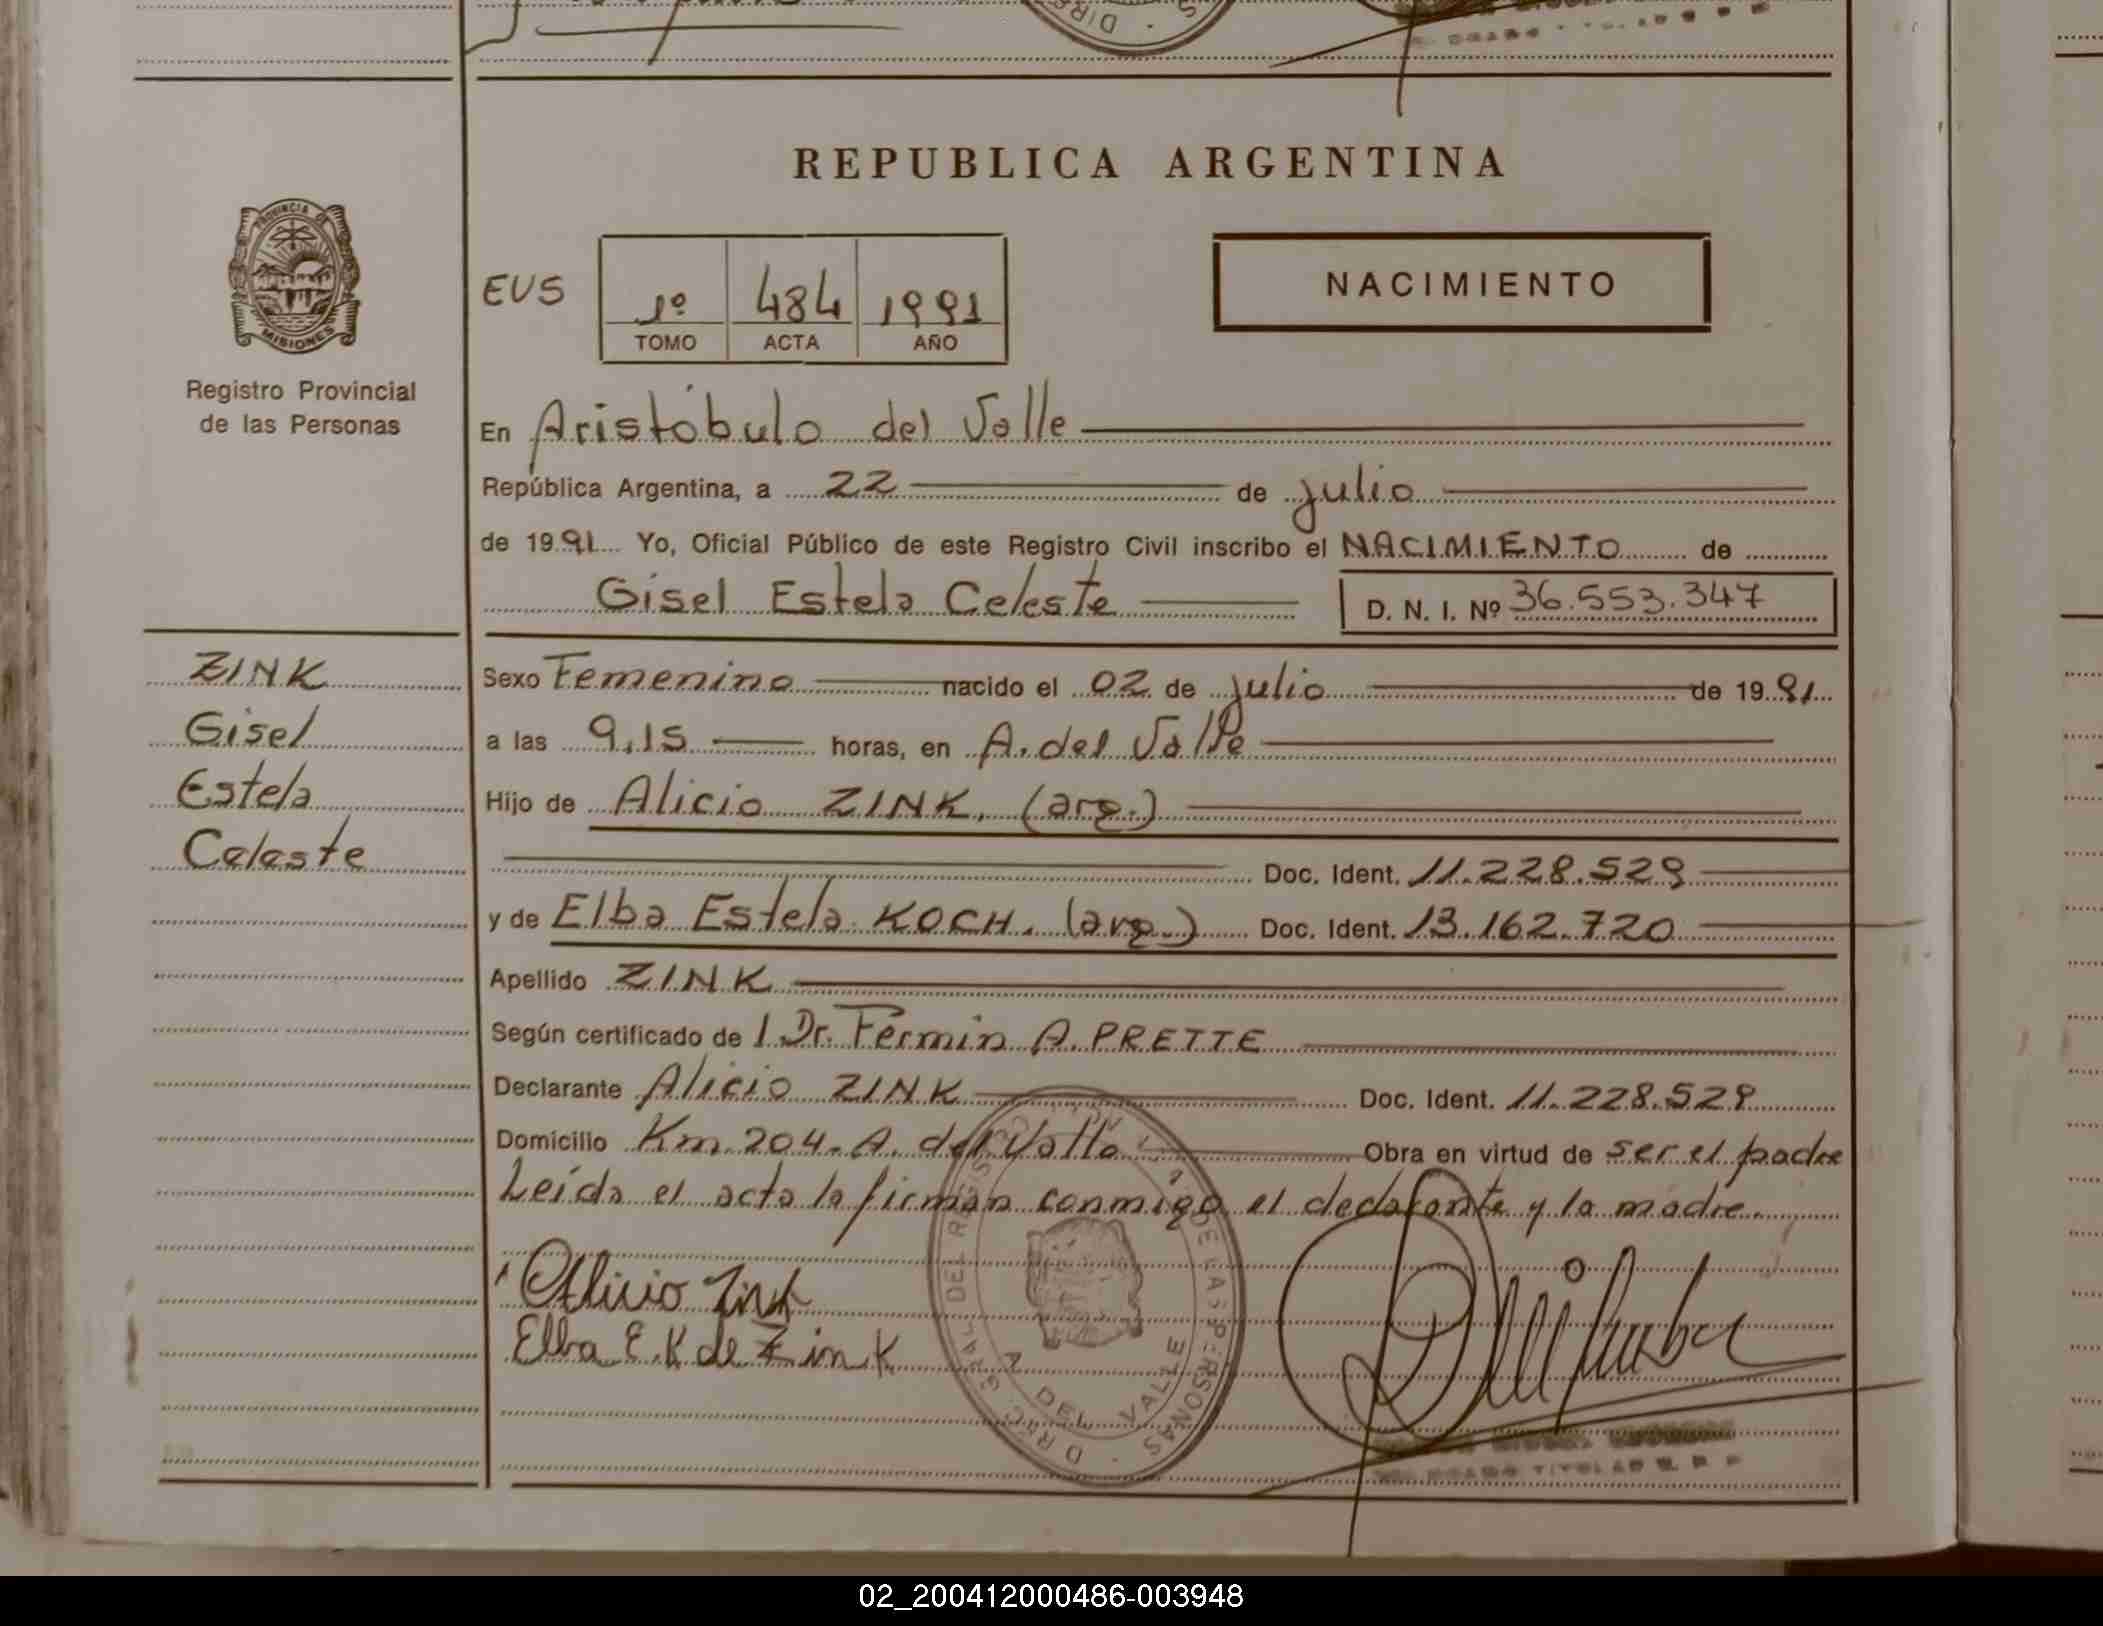 REPUBLICA ARGENTINA
PROVINCIA DE
MISIONES
Registro Provincial
de las Personas
EUS
1º 484 1991
TOMO ACTA AÑO
NACIMIENTO
En Aristóbulo del Valle
República Argentina, a 22 de julio
de 1991 Yo, Oficial Público de este Registro Civil inscribo el NACIMIENTO de
Gisel Estela Celeste D. N. I. Nº 36.553.347
ZINK
Gisel
Estela
Celeste
Sexo Femenino nacido el 02 de julio de 1991
a las 9,15 horas, en A. del Valle
Hijo de Alicio ZINK. (arg.)
Doc. Ident. 11.228.529
y de Elba Estela KOCH. (arg.) Doc. Ident. 13.162.720
Apellido ZINK
Según certificado de l Dr. Fermin A. PRETTE
Declarante Alicio ZINK Doc. Ident. 11.228.529
Domicilio Km. 204. A. del Valle Obra en virtud de ser el padre
Leída el acta la firman conmigo el declarante y la madre.
Alicio Zink
Elba E. K de Zink
DEL VALLE
DE LAS PERSONAS
TITULAR
02_200412000486-003948